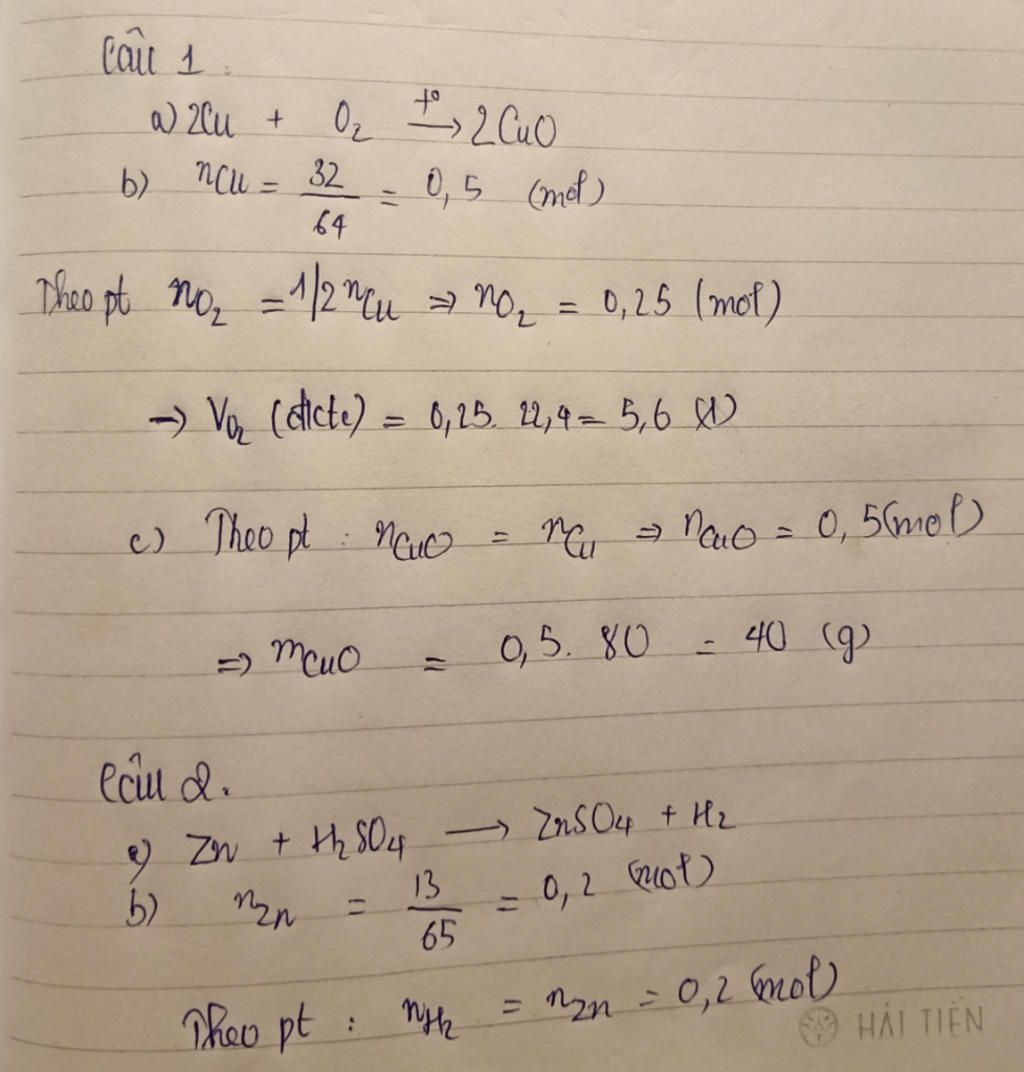 Câu 1.
a) 2Cu + O₂ →(t°) 2CuO
b) nCu = 32/64 = 0,5 (mol)
Theo pt nO₂ = 1/2 nCu ⇒ nO₂ = 0,25 (mol)
→ VO₂ (đktc) = 0,25. 22,4 = 5,6 (l)
c) Theo pt : nCuO = nCu ⇒ nCuO = 0,5 (mol)
⇒ mCuO = 0,5. 80 = 40 (g)
Câu 2.
a) Zn + H₂SO₄ → ZnSO₄ + H₂
b) nZn = 13/65 = 0,2 (mol)
Theo pt : nH₂ = nZn = 0,2 (mol)
HẢI TIẾN